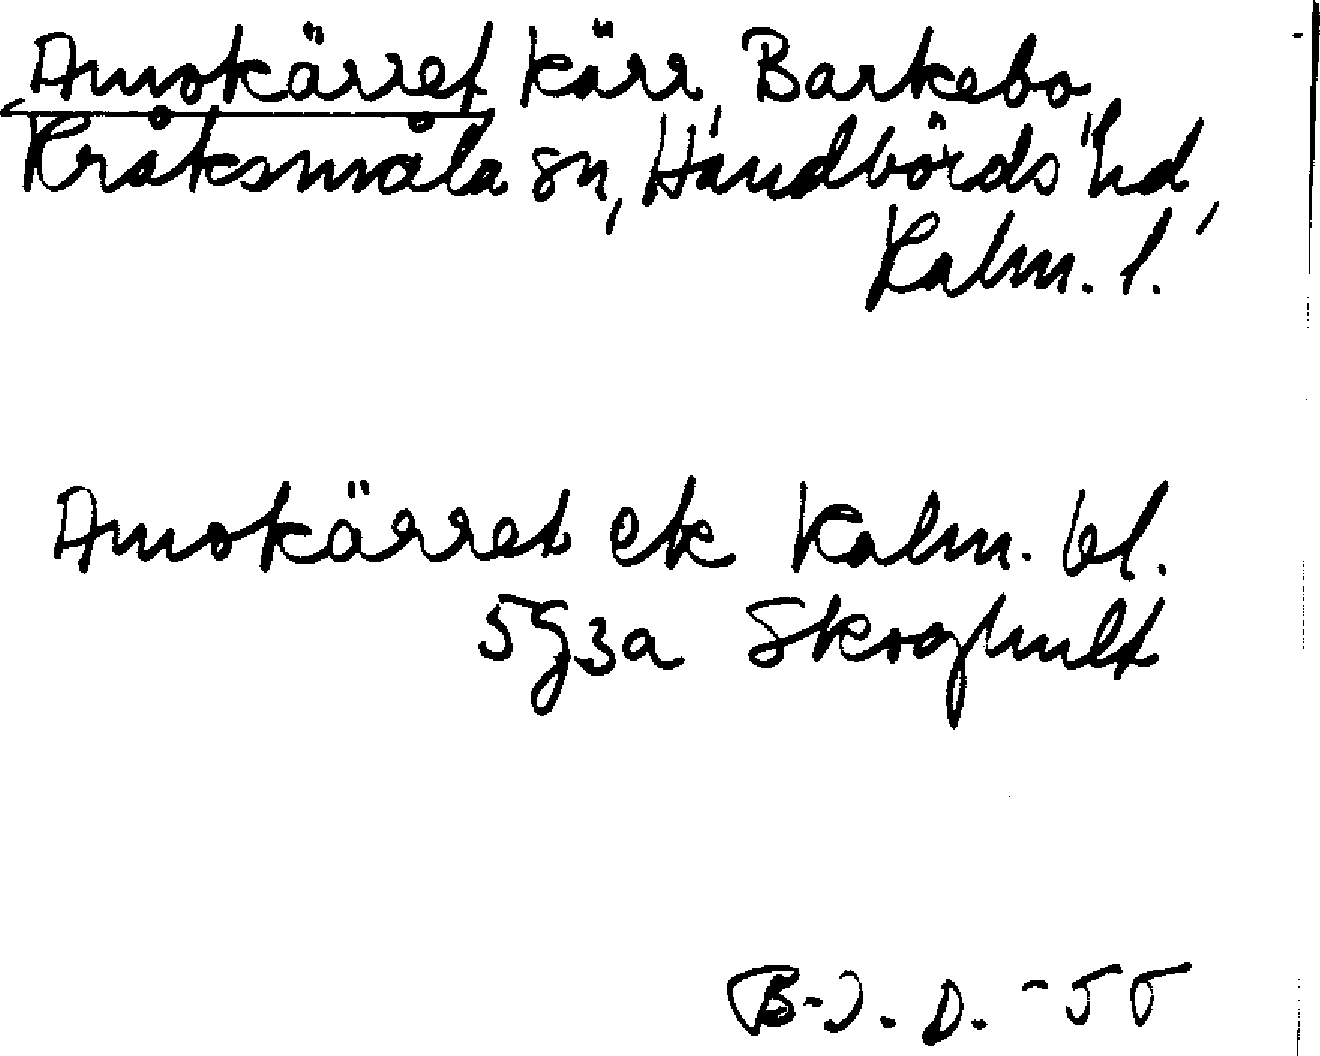 Amokärret kärr, Barkebo,
Kråksmåla sn, Handbörds hd,
Kalm. l.
Amokärret ek Kalm. bl.
5G3a Skoghult
B-J. D. -55